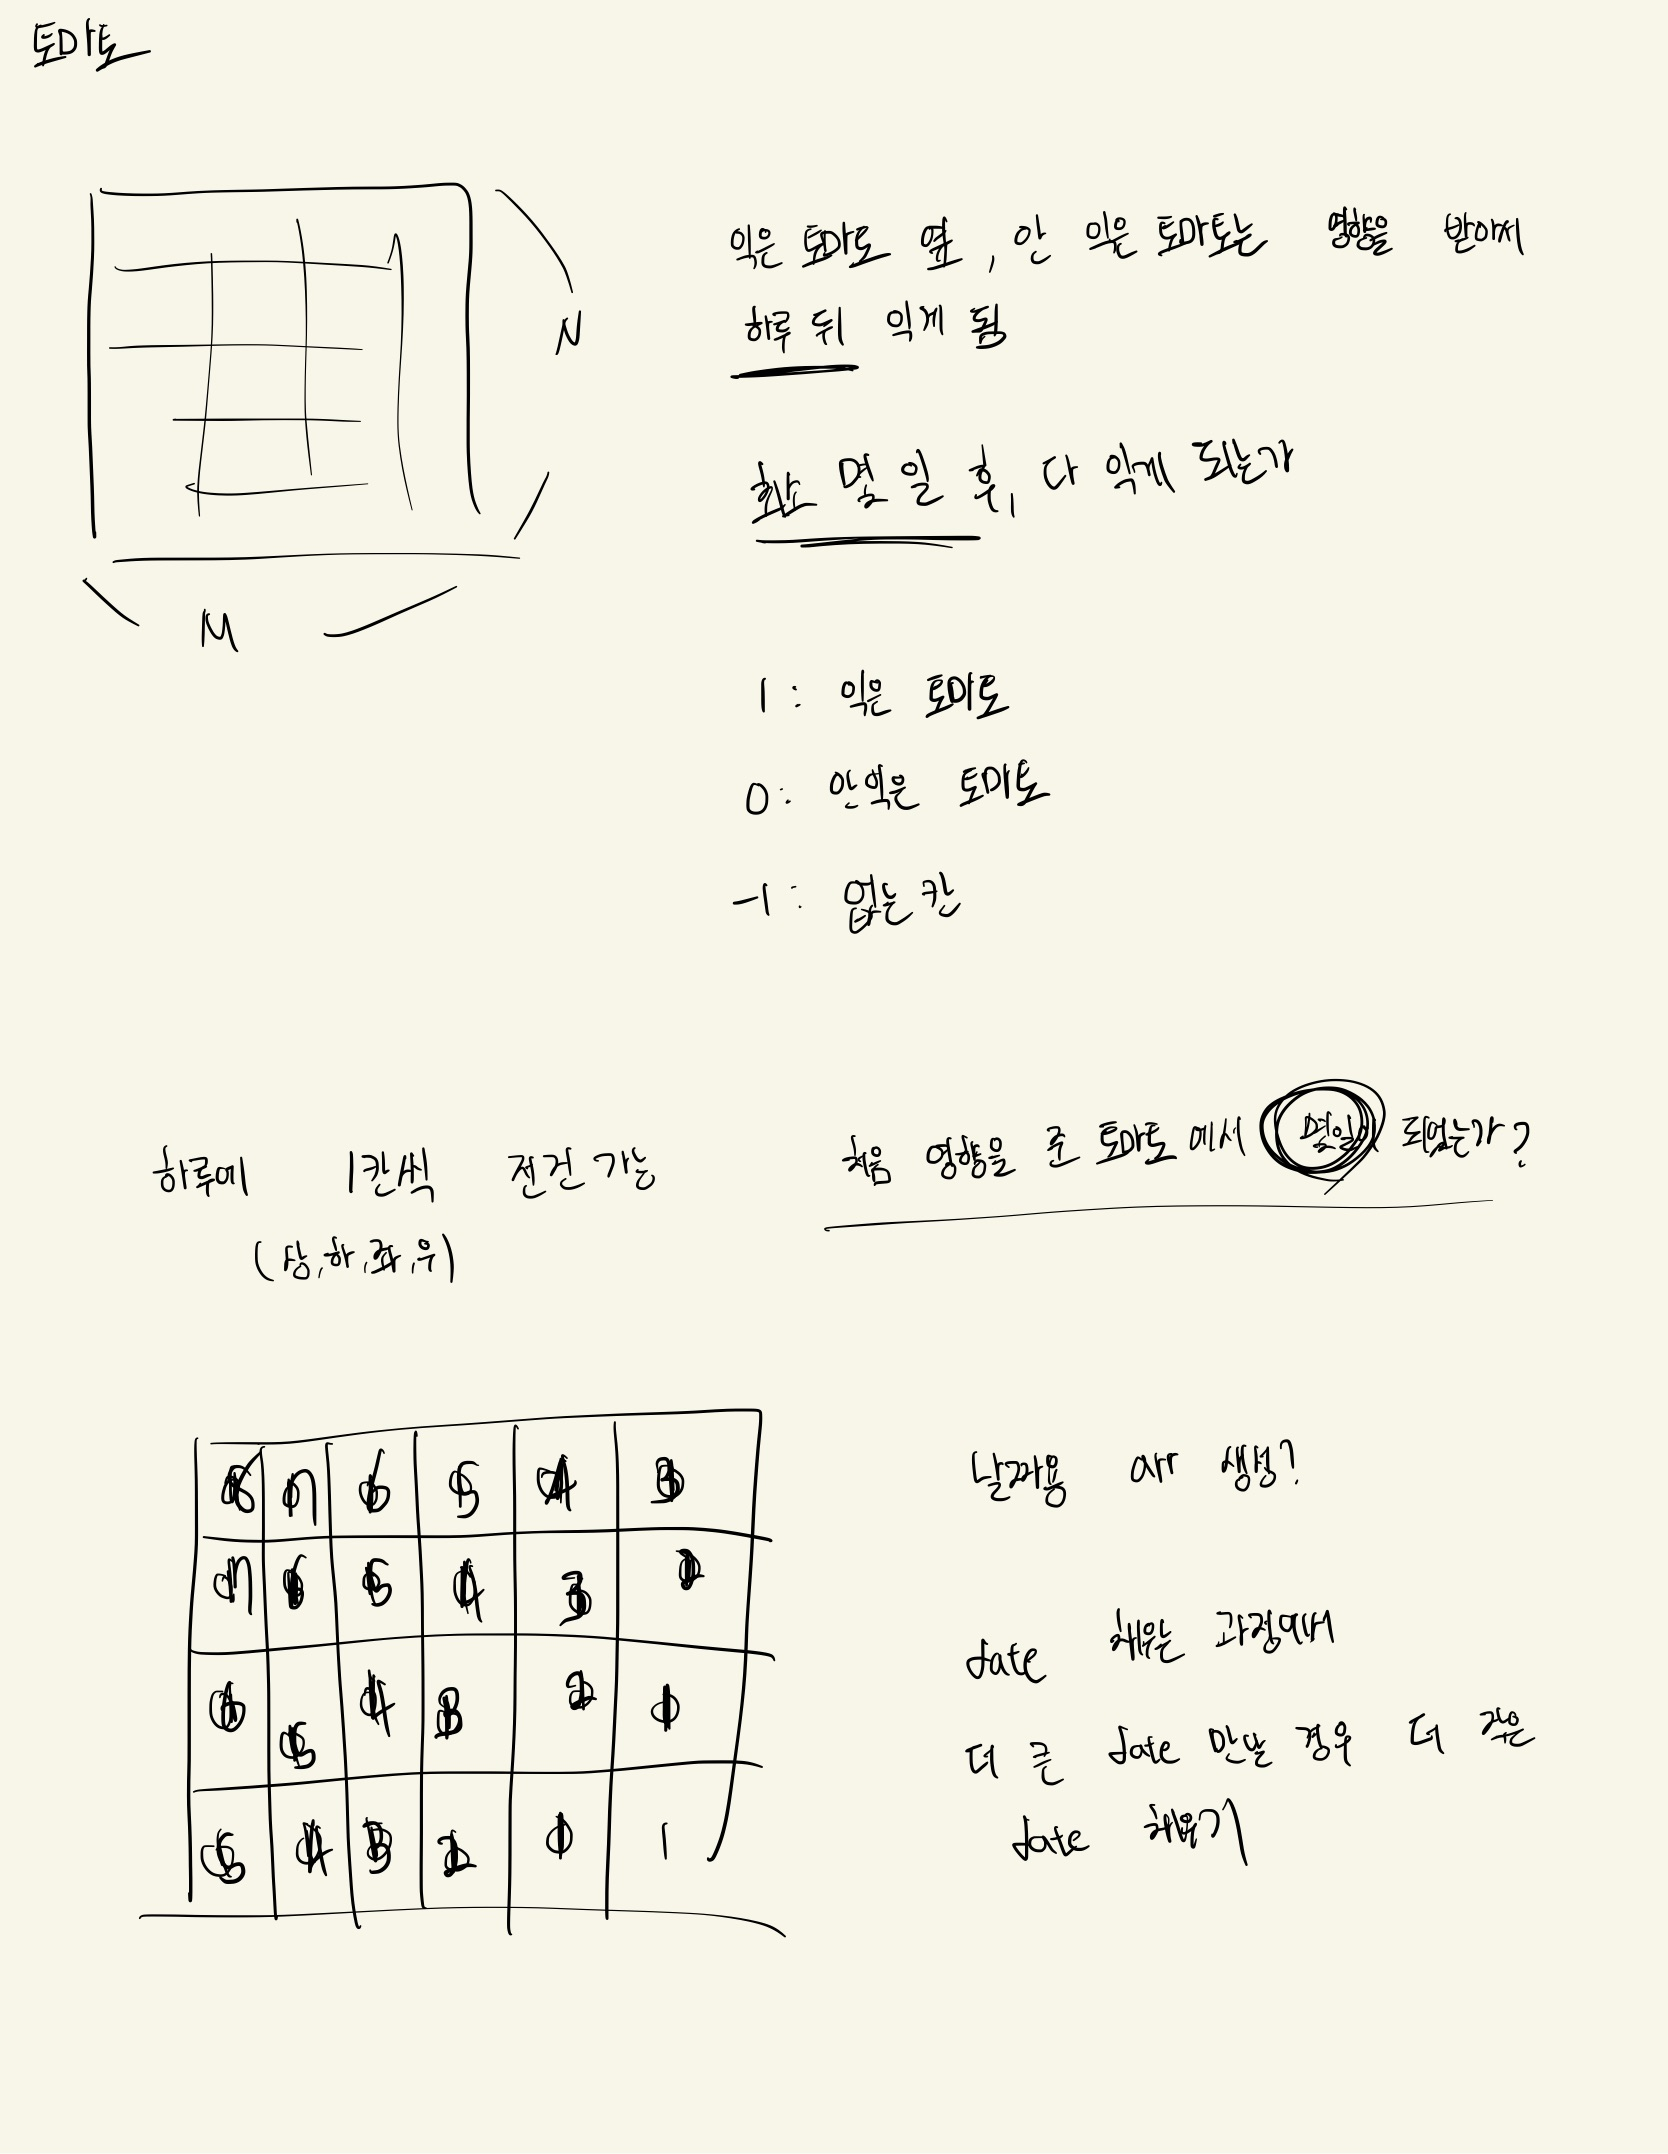 토마토
N
M
익은 토마토 옆, 안 익은 토마토는 영향을 받아서
하루 뒤 익게 됨
최소 몇 일 후, 다 익게 되는가
1 : 익은 토마토
0 : 안익은 토마토
-1 : 없는 칸
하루에 1칸씩 전진 가능
(상,하,좌,우)
처음 영향을 준 토마토에서 몇일이 되었는가?
8 7 6 5 4 3
7 6 5 4 3 2
6 5 4 3 2 1
5 4 3 2 1 1
날짜용 arr 생성?
date 채우는 과정에서
더 큰 date 만날 경우 더 작은
date 채우기